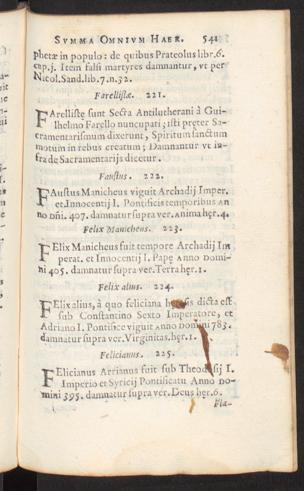 SVMMA OMNIVM HAER. 541
phetæ in populo: de quibus Prateolus libr.6.
cap.j. Item falsi martyres damnantur, vt per
Nicol.Sand.lib.7.n.32.
Farellistæ. 221.
FArellistę sunt Secta Antilutherani à Gui-
lhelmo Farello nuncupati; isti pręter Sa-
cramentarismum dixerunt, Spiritum sanctum
motum in rebus creatum; Damnantur vt in-
fra de Sacramentarijs dicetur.
Faustus. 222.
FAustus Manicheus viguit Archadij Imper.
et Innocentij I. Pontificis temporibus An
no Dñi. 407. damnatur supra ver. Anima hęr.4.
Felix Manicheus. 223.
FElix Manicheus fuit tempore Archadij Im
perat. et Innocentij I. Papę Anno Domi-
ni 405. damnatur supra ver. Terra hęr.1.
Felix alius. 224.
FElix alius, à quo feliciana dicta est
sub Constantino Sexto Imperatore, et
Adriano I. Pontifice viguit Anno Domini 783.
damnatur supra ver. Virginitas. hęr.1.
Felicianus. 225.
FElicianus Arrianus fuit sub Theodosij I.
Imperio et Syricij Pontificatu Anno Do-
mini 395. damnatur supra ver. Deus hęr.6.
Fla-